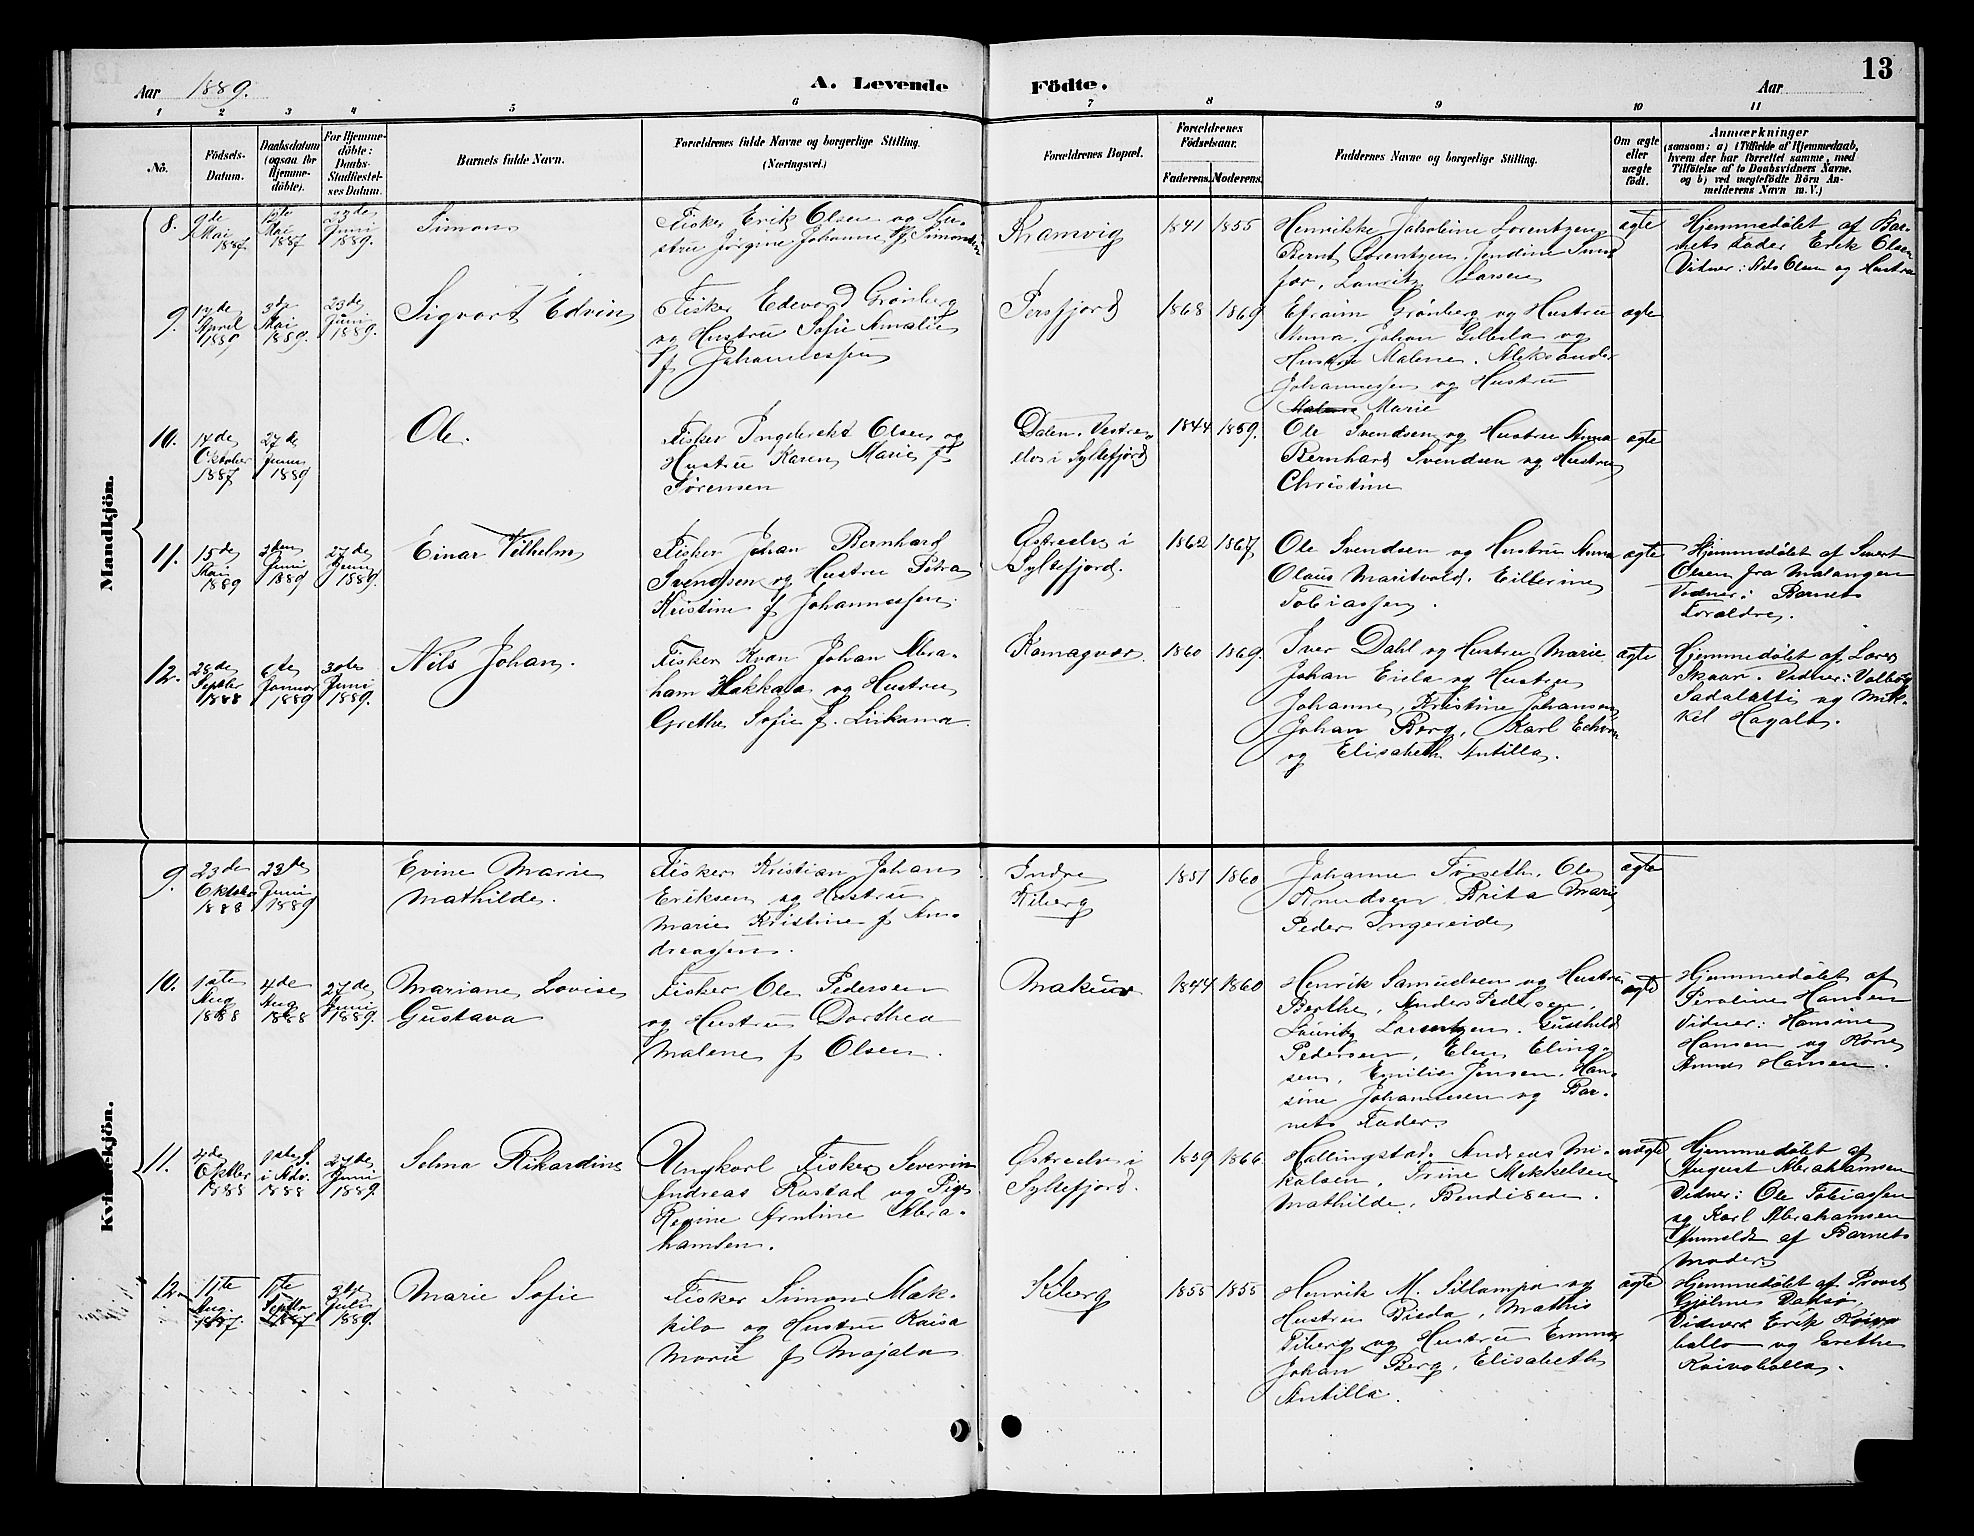 13
Aar 1889.
A. Levende Födte.
Aar
1 2 3 4 5 6 7 8 9 10 11
No.
Födsels-Datum.
Daabsdatum (ogsaa for Hjemme-döbte).
For Hjemme-döbte: Daabs-Stadfæstel-ses Datum.
Barnets fulde Navn.
Forældrenes fulde Navne og borgerlige Stilling. (Næringsvei.)
Forældrenes Bopæl.
Forældrenes Födselsaar.
Faderens. Moderens.
Faddernes Navne og borgerlige Stilling.
Om ægte eller uægte födt.
Anmærkninger
(saasom: a) i Tilfælde af Hjemmedaab, hvem der har forrettet samme, med Tilföielse af to Daabsvidners Navne, og b) ved uægtefödte Börn Anmelderens Navn m. V.)
Mandkjön.
8.
9de Mai 1887
Mai 1887
23de Juni 1889.
Simon
Fisker Erik Olsen og Hustru Jørgine Johanne f Simonsen
Kramvig
1841 1855
Henrikke Jakobine Lorentzen
Bernt Lorentzen, Jendine
Lauritz Larsen
ægte
Hjemmedøbt af Barnets Fader Erik Olsen
Vidner: Nils Olsen og Hustru
9.
April 1889
3de Mai 1889.
23de Juni 1889.
Sigvart Edvin
Fisker Edevard Grønberg
og Hustru Sofie Amalie
f Johannessen
Persfjord
1868 1869
Efraim Grønberg og Hustru
Anna, Johan og
Hustru Malene, Aleksander
Johannessen og Hustru
Marie
ægte
10.
14de Oktober 1887
27de Juni 1889
Ole.
Fisker Ingebrekt Olsen og
Hustru Karen Marie f
Sørensen
Dalen, Vestre-
elv i Syltefjord
1844 1859.
Ole Svendsen og Hustru Anna
Bernhard Svendsen og Hustru
Christine
ægte
11.
15de Mai 1889
Juni 1889
27de Juni 1889.
Einar Vilhelm
Fisker Johan Bernhard
Svendsen og Hustru Petra
Kristine f Johannessen.
Østreelv i
Syltefjord.
1862 1867
Ole Svendsen og Hustru Anna
Olaus Maritvold,
Tobiassen.
ægte
Hjemmedøbt af Sivert
Olsen fra Malangen
Vidner: Barnets
Forældre.
12.
28de Septbr 1888
6te Januar 1889
30te Juni 1889.
Nils Johan.
Fisker Kvæn Johan Abra-
ham Hakkala og Hustru
Grethe Sofie f.
Komagvær
1860 1869.
Iver Dahl og Hustru Marie
Johan og Hustru
Johanne, Kristine Johansen,
Johan Berg, Karl
og Elisabeth Antilla.
ægte
Hjemmedøbt af Lars
Skaar. Vidner:
og Mik-
kel
Kvindekjön.
9.
23de Oktober 1888
23de Juni 1889
Evine Marie
Mathilde.
Fisker Kristian Johan
Eriksen og Hustru
Marie Kristine f An-
dreassen.
Indre
Kiberg
1851 1860
Johanne Ole
Knudsen, Brita Marie
Peder
ægte
10.
1ste Aug 1888
4de Aug 1888
27de Juni 1889.
Mariane Lovise
Gustava
Fisker Ole Pedersen
og Hustru Dorthea
Malene f Olsen.
Makur
1844 1860
Henrik Samuelsen og Hustru
Berthe, Anders Pedersen,
Lauritz Lorentzen,
Pedersen, Elen Eling-
sen, Emilie Jensen, Han-
sine Johannesen og Bar-
nets Fader
ægte
Hjemmedøbt af
Hansen
Vidner: Hansine
Hansen og
Hansen.
11.
4de Oktbr 1888
1ste S. i Adv. 1888
27de Juni 1889.
Selma Rikardine
Ungkarl Fisker Severin
Andreas Rostad og Pige
Regine Arntine Abra-
hamsen.
Østreelv i
Syltefjord.
1859 1866.
Hallingstad, Andreas Mi-
kalsen, Trine Mikkelsen
Mathilde Bendiksen.
uægte
Hjemmedøbt af
August Abrahamsen
Vidner: Ole Tobiassen
og Karl Abrahamsen
Anmeldt af Barnets
Moder
12.
11te Aug. 1887
11te Septbr 1887
Juli 1889.
Marie Sofie
Fisker Simon Mak-
kila og Hustru Kaisa
Marie f Majala
Kiberg
1855 1855
Henrik M. Sillampa og
Hustru Mathis
og Hustru Emma
Johan Berg, Elisabeth
Antilla.
ægte
Hjemmedøbt af Provst
Vidner: Erik
og Grethe